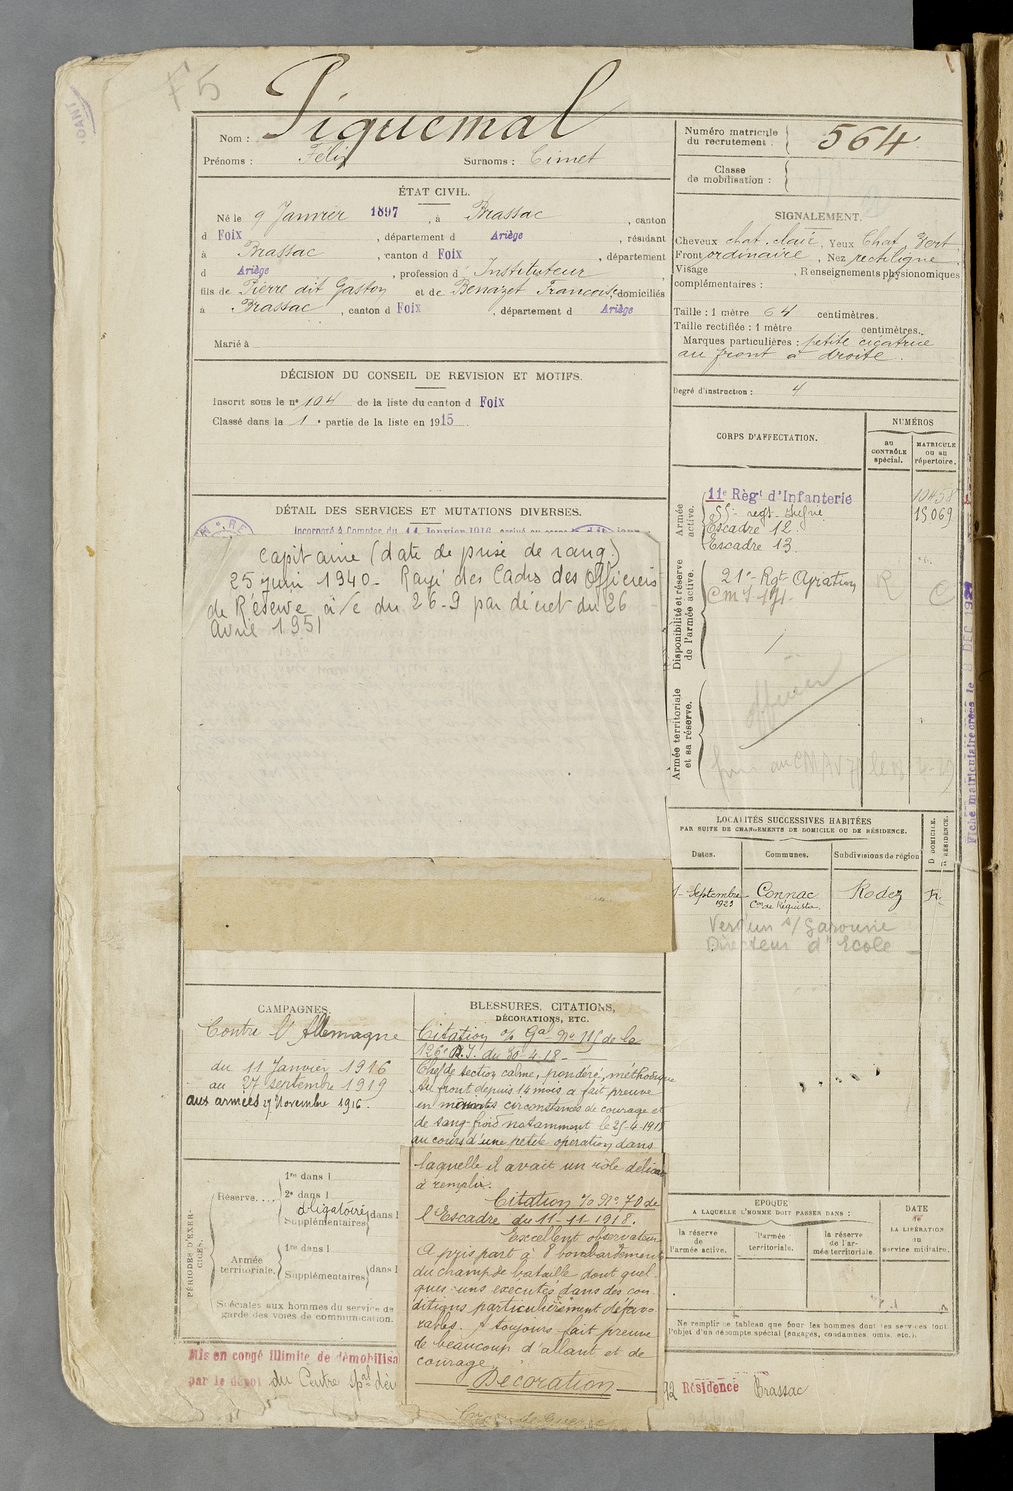 F5
Nom : Piquemal
Prénoms : Félix Surnoms : Cimet
Numéro matricule du recrutement : 564
Classe de mobilisation :
ÉTAT CIVIL.
Né le 9 Janvier 1897, à Brassac, canton
d Foix, département d Ariège, résidant
à Brassac, canton d Foix, département
d Ariège, profession d Instituteur
fils de Pierre dit Gaston et de Benazet Francoise, domiciliés
à Brassac, canton d Foix, département d Ariège
Marié à
SIGNALEMENT.
Cheveux chat. clair, Yeux Chat. Vert
Front ordinaire, Nez rectiligne
Visage , Renseignements physionomiques
complémentaires :
Taille : 1 mètre 64 centimètres.
Taille rectifiée : 1 mètre centimètres.
Marques particulières : petite cicatrice
au front à droite.
Degré d'instruction : 4
DÉCISION DU CONSEIL DE REVISION ET MOTIFS.
Inscrit sous le n° 104 de la liste du canton d Foix
Classé dans la 1e partie de la liste en 1915
DÉTAIL DES SERVICES ET MUTATIONS DIVERSES.
Incorporé à Compter du 11 Janvier 1916
Capitaine (date de prise de rang)
25 Juin 1940 - Rayé des Cadres des Officiers
de Réserve à/c du 26-9 par décret du 26
avril 1951
CORPS D'AFFECTATION.
NUMÉROS
au CONTRÔLE spécial.
MATRICULE ou au répertoire.
Armée active.
11e Régt d'Infanterie 10458
55e regt. d'Infrie 15069
Escadre 12
Escadre 13.
Disponibilité et réserve de l'armée active.
21e Rgt Aviation
Armée territoriale et sa réserve.
officier
Fiche matriculaire créée le DEC 192
LOCALITÉS SUCCESSIVES HABITÉES
PAR SUITE DE CHANGEMENTS DE DOMICILE OU DE RÉSIDENCE.
Dates. Communes. Subdivisions de région D DOMICILE. R RÉSIDENCE.
1 Septembre 1923 Connac Con de Réquista Rodez R.
Verdun s/ Garonne
Directeur d'Ecole
CAMPAGNES.
Contre l'Allemagne
du 11 Janvier 1916
au 27 septembre 1919
aux armées 27 Novembre 1916.
BLESSURES, CITATIONS,
DÉCORATIONS, ETC.
Citation o/ Gal n° 115 de la
126e D.I. du 30-4-18 -
Chef de section calme, pondéré, méthodique
Au front depuis 14 mois a fait preuve
en maintes circonstances de courage et
de sang-froid notamment le 25-4-1918
au cours d'une petite opération dans
laquelle il avait un rôle délicat
à remplir.
Citation o/ N° 70 de
l'Escadre du 11-11 1918.
Excellent observateur
A pris part à 8 bombardements
du champ de bataille dont quel-
ques-uns executés dans des con-
ditions particulièrement défavo-
rables. A toujours fait preuve
de beaucoup d'allant et de
courage.
Décoration
Croix de Guerre
PÉRIODES D'EXERCICES.
Réserve....
1re dans l
2e dans l
Obligatoire
Supplémentaires dans l
Armée territoriale.
1re dans l
Supplémentaires dans l
Spéciales aux hommes du service de
garde des voies de communication.
EPOQUE
A LAQUELLE L'HOMME DOIT PASSER DANS :
la réserve de l'armée active.
l'armée territoriale.
la réserve de l'armée territoriale
DATE DE LA LIBÉRATION du service militaire.
Ne remplir ce tableau que pour les hommes dont les services font
l'objet d'un décompte spécial (engagés, condamnés, omis, etc.).
Mis en congé illimité de démobilisa
par le dépôt du Centre
Résidence Brassac